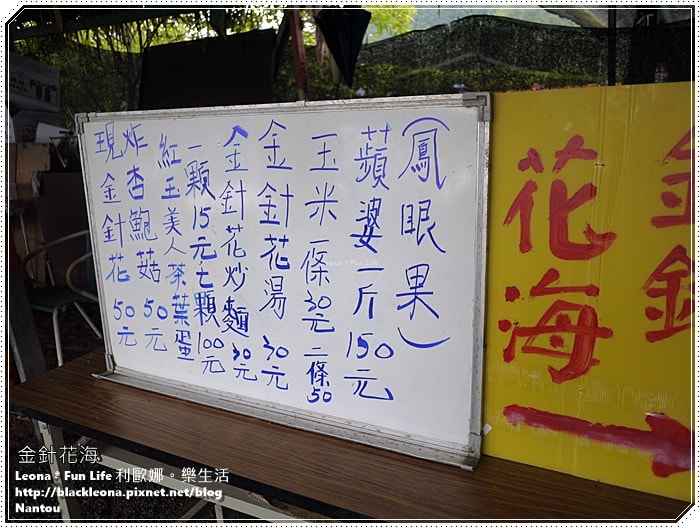 (鳳眼果)
蘋婆一斤150元
玉米一條30元二條50
金針花湯30元
金針花炒麵30元
一顆15元七顆100元
紅玉美人茶葉蛋
炸杏鮑菇50元
現金針花50元
金針
花海
Leona * Fun Life
金針花海
Leona * Fun Life 利歐娜。樂生活
http://blackleona.pixnet.net/blog
Nantou